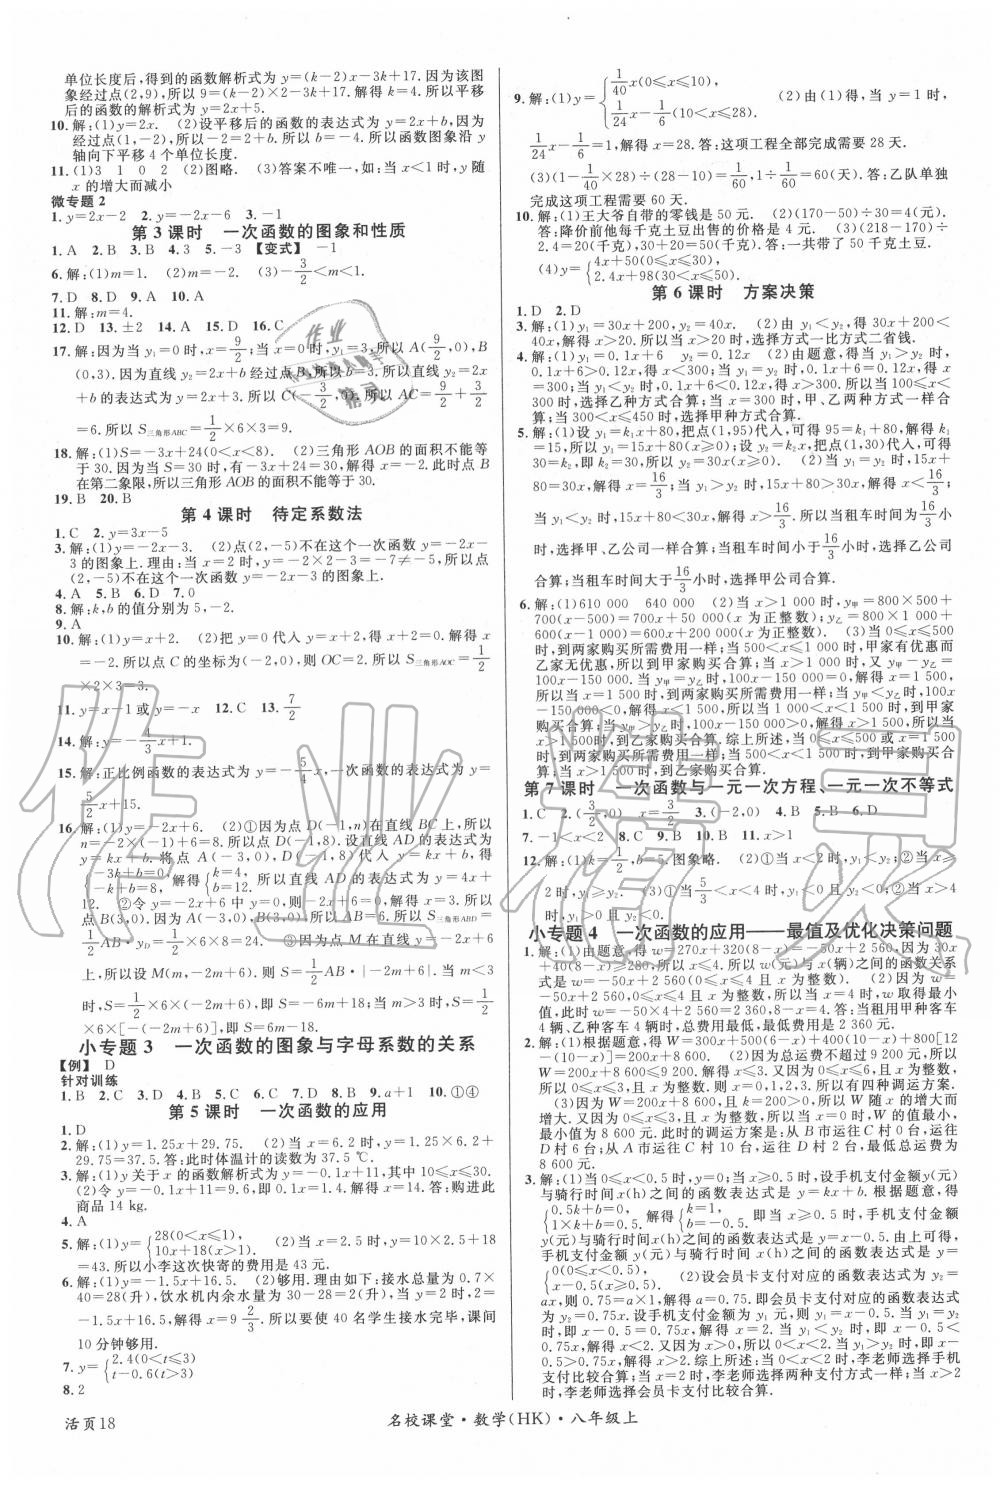 单位长度后,得到的函数解析式为 y=(k-2)x-3k+17.因为该图
象经过点(2,9),所以 9=(k-2)×2-3k+17.解得 k=4.所以平移
后的函数的解析式为 y=2x+5.
10.解:(1)y=2x. (2)设平移后的函数的表达式为 y=2x+b,因为
经过点(1,-2),所以-2=2+b.所以 b=-4.所以函数图象沿 y
轴向下平移 4 个单位长度.
11.(1)3 1 0 2 (2)图略. (3)答案不唯一,如:当 x<1 时,y 随
x 的增大而减小
微专题 2
1.y=2x-2 2.y=-2x-6 3.-1
第 3 课时 一次函数的图象和性质
1.A 2.B 3.B 4.3 5.-3 【变式】 -1
6.解:(1)m=1. (2)m=2. (3)-3/2<m<1.
7.D 8.D 9.A 10.A
11.解:m=4.
12.D 13.±2 14.A 15.D 16.C
17.解:因为当 y₁=0 时,x=9/2;当 x=0 时,y₁=3,所以 A(9/2,0),B
(0,3).因为直线 y₂=2x+b 经过点 B,所以 b=3.
的表达式为 y₂=2x+3.所以 C(-3/2,0).所以 AC=9/2+3/2
=6.所以 S三角形ABC=1/2×6×3=9.
18.解:(1)S=-3x+24(0<x<8). (2)三角形 AOB 的面积不能等
于 30.因为当 S=30 时,有-3x+24=30,解得 x=-2.此时点 B
在第二象限,所以三角形 AOB 的面积不能等于 30.
19.B 20.B
第 4 课时 待定系数法
1.C 2.y=3x-5
3.解:(1)y=-2x-3. (2)点(2,-5)不在这个一次函数 y=-2x-
3 的图象上.理由:当 x=2 时,y=-2×2-3=-7≠-5,所以点
(2,-5)不在一次函数 y=-2x-3 的图象上.
4.A 5.B 6.D 7.0
8.解:k,b 的值分别为 5,-2.
9.A
10.解:(1)y=x+2. (2)把 y=0 代入 y=x+2,得 x+2=0.解得 x
=-2.所以点 C 的坐标为(-2,0),则 OC=2.所以 S三角形AOC=1/2
×2×3=3.
11.y=x-1或y=-x 12.C 13.7/2
14.解:y=-4/3x+1.
15.解:正比例函数的表达式为 y=-5/4x,一次函数的表达式为 y=
5/2x+15.
16.解:(1)y=-2x+6. (2)①因为点 D(-1,n)在直线 BC 上,所以
n=-2×(-1)+6=8.所以点 D(-1,8).设直线 AD 的表达式为
y=kx+b.将点 A(-3,0),D(-1,8)代入 y=kx+b,得
{-3k+b=0,-k+b=8.解得{k=4,b=12.所以直线 AD 的表达式为 y=4x+
12. ②令 y=-2x+6 中的 y=0,则-2x+6=0,解得 x=3.所以
点 B(3,0).因为点 A(-3,0),所以 AB=6.所以 S三角形ABD=
1/2AB·y_D=1/2×6×8=24. ③因为点 M 在直线 y=-2x+6
上,所以设 M(m,-2m+6).所以 S=1/2AB·|-2m+6|.当 m<3
时,S=1/2×6×(-2m+6),即 S=-6m+18;当 m>3 时,S=1/2
×6×[-(-2m+6)],即 S=6m-18.
小专题 3 一次函数的图象与字母系数的关系
【例】 D
针对训练
1.B 2.C 3.D 4.B 5.C 6.C 7.D 8.B 9.a+1 10.①④
第 5 课时 一次函数的应用
1.D
2.解:(1)y=1.25x+29.75. (2)当 x=6.2 时,y=1.25×6.2+
29.75=37.5.答:此时体温计的读数为 37.5 ℃.
3.解:(1)y 关于 x 的函数解析式为 y=-0.1x+11,其中 10≤x≤30.
(2)令 y=-0.1x+11=9.6,即 0.1x+11=9.6,解得 x=14.答:购进此
商品 14 kg.
4.A
5.解:(1)y={28(0<x≤1),10x+18(x>1). (2)当 x=2.5 时,y=10×2.5+18
=43.所以小李这次快寄的费用是 43 元.
6.解:(1)y=-1.5x+16.5. (2)够用.理由如下:接水总量为 0.7×
40=28(升),饮水机内余水量为 30-28=2(升),当 y=2 时,2=
-1.5x+16.5,解得 x=9 2/3.所以要使 40 名学生接水完毕,课间
10 分钟够用.
7.y={2.4(0<t≤3),t-0.6(t>3)
8.2
活页18
9.解:(1)y={1/40x(0≤x≤10),1/24x-1/6(10<x≤28). (2)由(1)得,当 y=1 时,
1/24x-1/6=1,解得 x=28.答:这项工程全部完成需要 28 天.
(3)(1-1/40×28)÷(28-10)=1/60,1÷1/60=60(天).答:乙队单独
完成这项工程需要 60 天.
10.解:(1)王大爷自带的零钱是 50 元. (2)(170-50)÷30=4(元).
答:降价前他每千克土豆出售的价格是 4 元. (3)(218-170)÷
2.4=20(千克),30+20=50(千克).答:一共带了 50 千克土豆.
(4)y={4x+50(0≤x≤30),2.4x+98(30<x≤50).
第 6 课时 方案决策
1.D 2.D
3.解:(1)y₁=30x+200,y₂=40x. (2)由 y₁<y₂,得 30x+200<
40x,解得 x>20.所以当 x>20 时,选择方式一比方式二省钱.
4.解:(1)y₁=0.1x+6 y₂=0.12x (2)由题意,得当 y₁>y₂ 时,
0.1x+6>0.12x,得 x<300;当 y₁=y₂ 时,0.1x+6=0.12x,得 x
=300;当 y₁<y₂ 时,0.1x+6<0.12x,得 x>300.所以当 100≤x<
300 时,选择乙种方式合算;当 x=300 时,甲、乙两种方式一样合
算;当 300<x≤450 时,选择甲种方式合算.
5.解:(1)设 y₁=k₁x+80,把点(1,95)代入,可得 95=k₁+80,解得 k₁
=15,所以 y₁=15x+80(x≥0);设 y₂=k₂x,把(1,30)代入,可得
30=k₂,即 k₂=30,所以 y₂=30x(x≥0). (2)当 y₁=y₂ 时,15x+
80=30x,解得 x=16/3;当 y₁>y₂ 时,15x+80>30x,解得 x<16/3;
当 y₁<y₂ 时,15x+80<30x,解得 x>16/3.所以当租车时间为16/3小时,
选择甲、乙公司一样合算;当租车时间小于16/3小时,选择乙公司
合算;当租车时间大于16/3小时,选择甲公司合算.
6.解:(1)610 000 640 000 (2)当 x>1 000 时,y甲=800×500+
700(x-500)=700x+50 000(x 为正整数);y乙=800×1 000+
600(x-1 000)=600x+200 000(x 为正整数). (3)当 0≤x≤5
00 时,到两家购买所需费用一样;当 500<x≤1 000 时,甲家有优惠而
乙家无优惠,所以到甲家购买合算;当 x>1 000 时,又 y甲-y乙=
100x-150 000.当 y甲=y乙 时,100x-150 000=0,解得 x=1 500,
所以当 x=1 500 时,到两家购买所需费用一样;当 y甲<y乙 时,100x
-150 000<0,解得 x<1 500,所以当 1 000<x<1 500 时,到甲家
购买合算;当 y甲>y乙 时,100x-150 000>0,解得 x>1 500,所以当
x>1 500 时,到乙家购买合算.综上所述,当 0≤x≤500 或 x=1 500
时,到两家购买所需费用一样;当 500<x<1 500 时,到甲家购买合
算;当 x>1 500 时,到乙家购买合算.
第 7 课时 一次函数与一元一次方程、一元一次不等式
1.C 2.(3/2,0) x=3/2 3.(-2,0) 4.B 5.B 6.D
7.-1<x<2 8.C 9.B 10.B 11.x>1
12.解:(1)k=1/2,b=5.图象略. (2)①当 x<2 时,y₁<y₂;②当 x≥
2时,y₁≥y₂. (3)①当5/3<x<4 时,y₁<0 且 y₂<0;②当 x>4
时,y₁>0 且 y₂<0.
小专题 4 一次函数的应用——最值及优化决策问题
1.解:(1)由题意,得 w=270x+320(8-x)=-50x+2 560,因为 30x
+40(8-x)≥280,所以 x≤4.所以 w(元)与 x(辆)之间的函数关系
式是 w=-50x+2 560(0≤x≤4 且 x 为整数). (2)因为 w=-50x
+2 560,0≤x≤4 且 x 为整数,所以当 x=4 时,w 取得最小
值,此时 w=-50×4+2 560=2 360,8-4=4.答:当租用甲种客车
4 辆、乙种客车 4 辆时,总费用最低,最低费用为 2 360 元.
2.解:(1)根据题意,得 W=300x+500(6-x)+400(10-x)+800[12
-(10-x)]=200x+8 600. (2)因为运费不超过 9 200 元,所以
W=200x+8 600≤9 200.所以 x≤3.因为 0≤x≤6,且 x 为整数,所
以 0≤x≤3,且 x 为整数.则 x=0,1,2,3,所以有四种调运方案.
(3)因为 0≤x≤3,且 W=200x+8 600,所以 W 随 x 的增大而
增大.又因为 0≤x≤3,且 x 为整数,所以当 x=0 时,W 的值最小,
最小值为 8 600 元.此时的调运方案是:从 B 市运往 C 村 0 台,运往
D 村 6 台;从 A 市运往 C 村 10 台,运往 D 村 2 台,最低总运费为
8 600 元.
3.解:(1)当 0≤x≤0.5 时,y=0;当 x>0.5 时,设手机支付金额y(元)
与骑行时间x(h)之间的函数表达式是 y=kx+b.根据题意,得
{0.5k+b=0,1×k+b=0.5.解得{k=1,b=-0.5.即当 x≥0.5 时,手机支付金额
y(元)与骑行时间x(h)的函数表达式是 y=x-0.5.由上可得,
手机支付金额 y(元)与骑行时间 x(h)的函数表达式是 y=
{0(0≤x≤0.5),x-0.5(x≥0.5). (2)设会员卡支付对应的函数表达式为 y₂=
ax,则 0.75=a×1,解得 a=0.75.即会员卡支付对应的函数表达式
为 y₂=0.75x.设手机支付金额为 y₁ 元,则 y₁=x-0.5,当 y₁=y₂
时,0.75x=x-0.5,解得 x=2.当 y₁>y₂ 时,
0.75x,解得 x>2.综上所述,当 0<x<2 时,李老师选择手机
支付比较合算;当 x=2 时,李老师选择两种支付都一样;当 x>2
时,李老师选择会员卡支付比较合算.
名校课堂·数学(HK)·八年级上